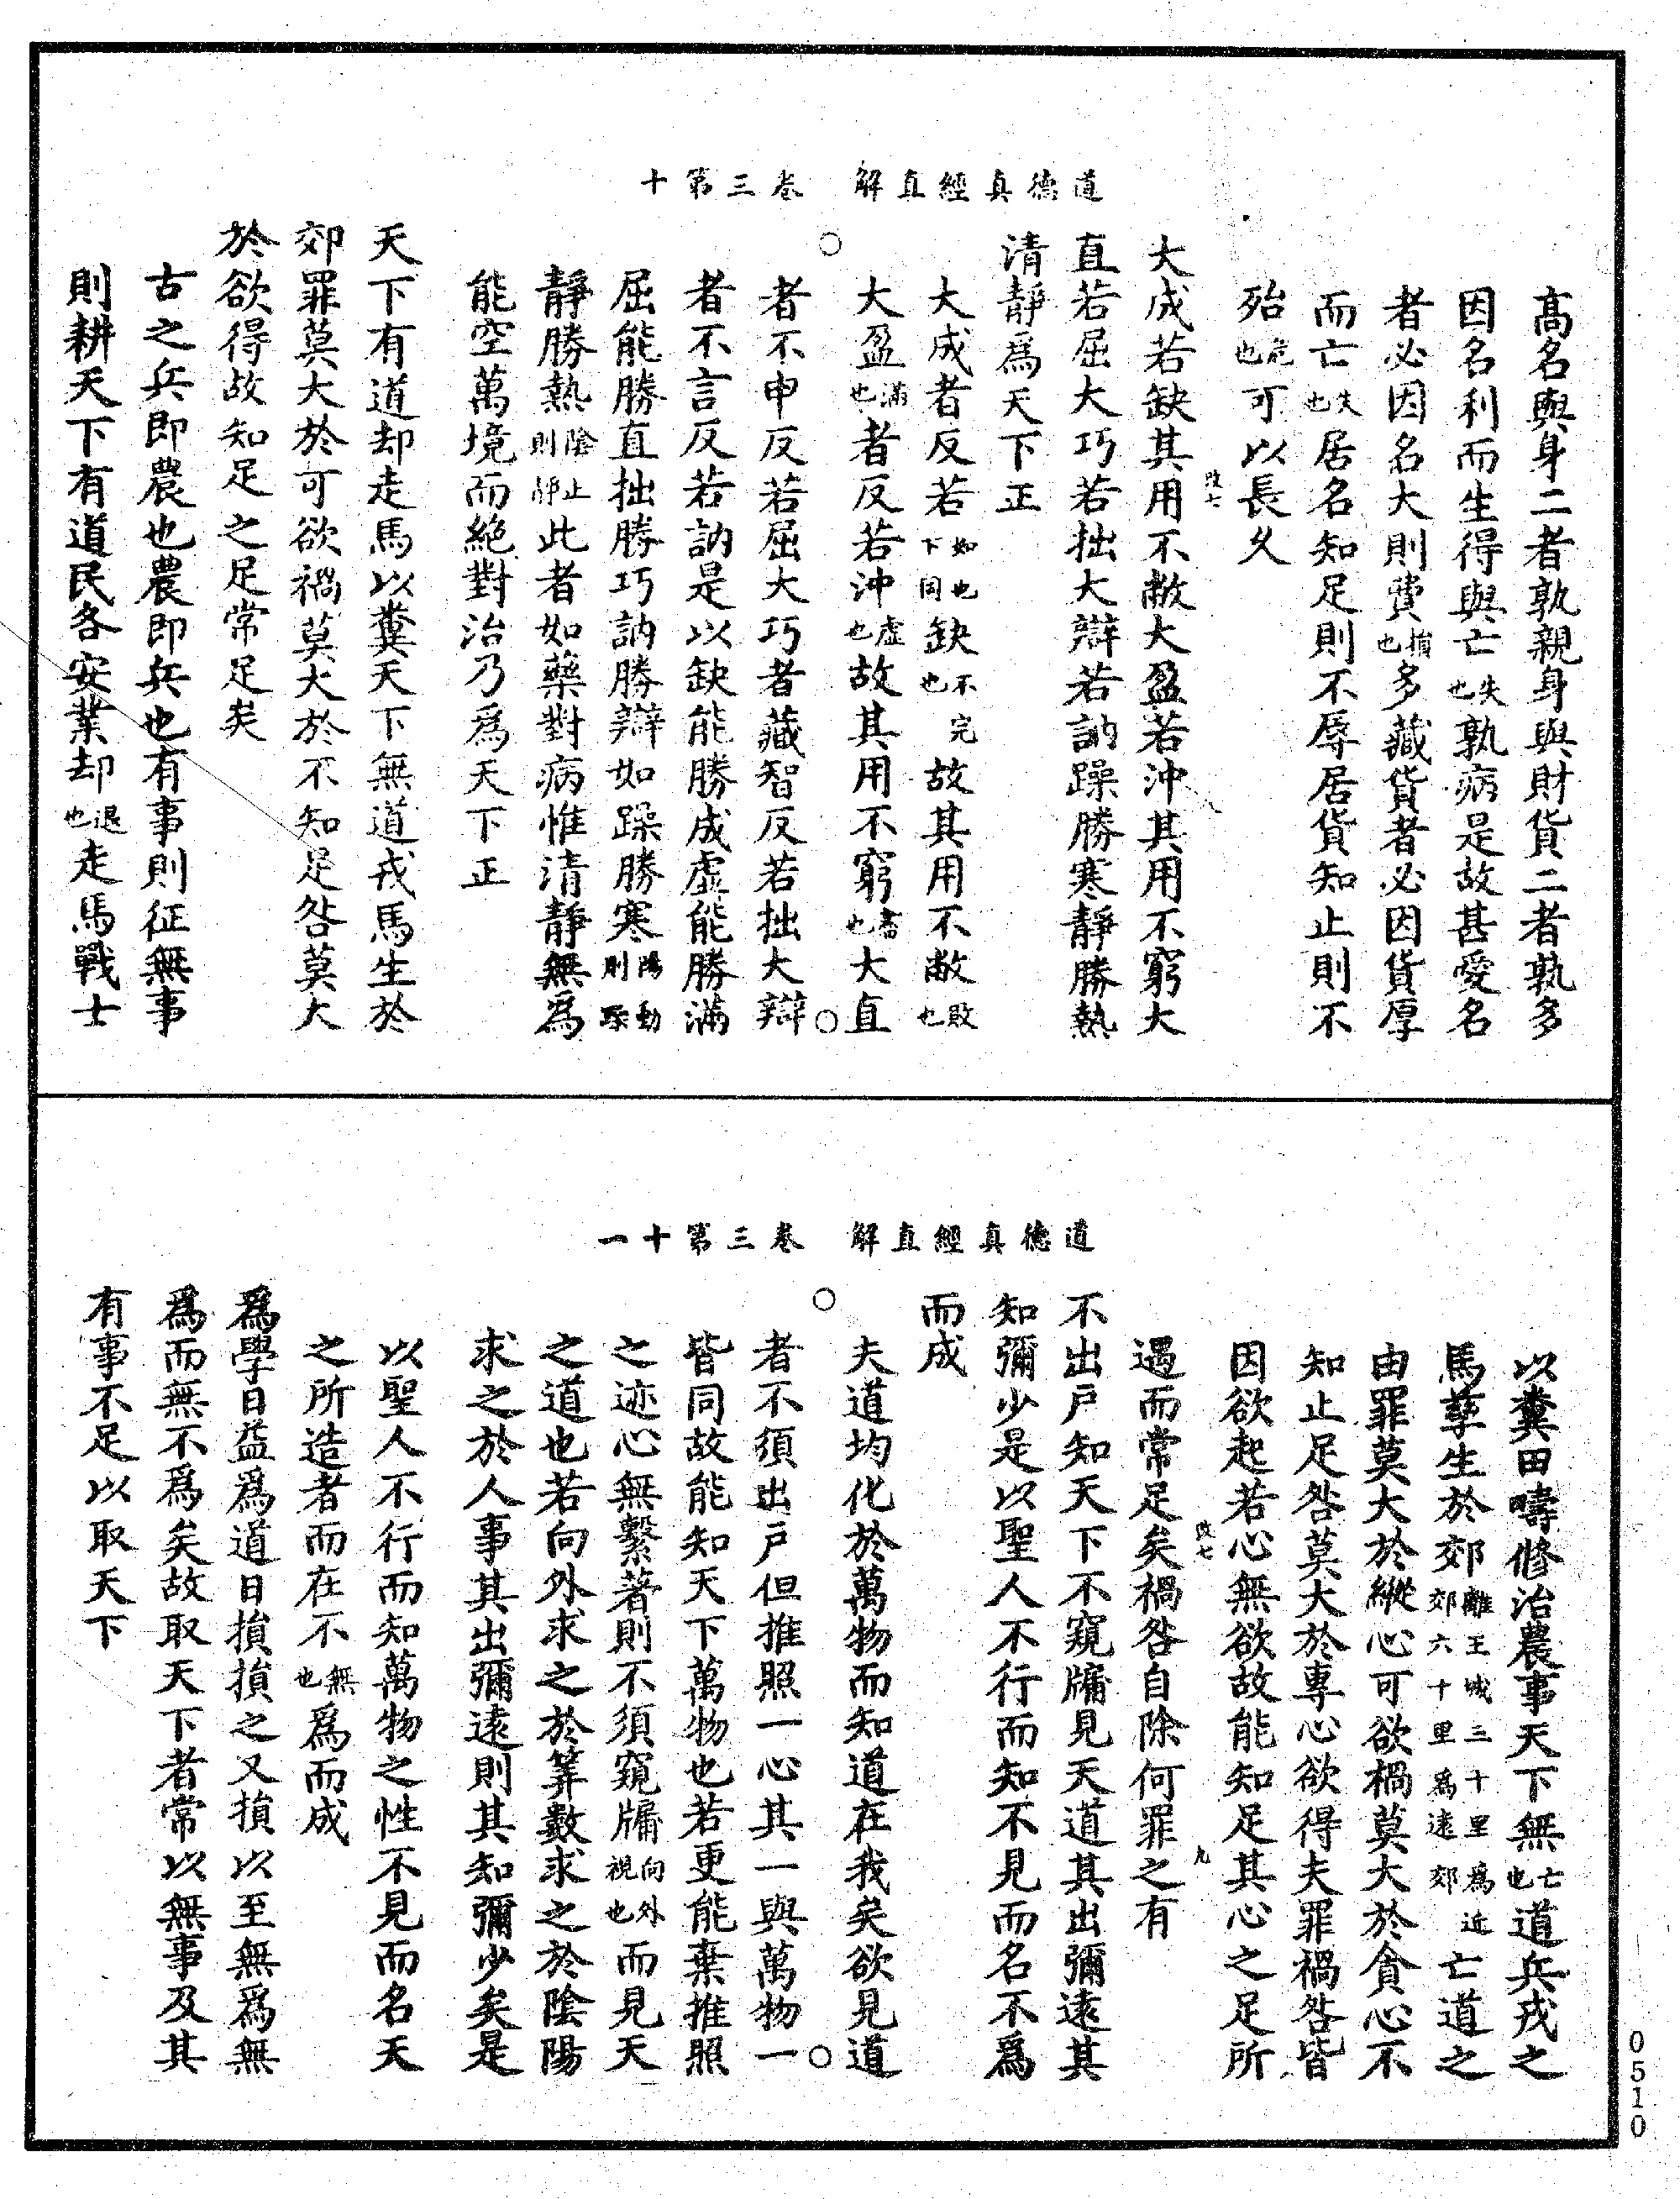 道德真經直解　卷三第十
高名與身二者孰親身與財貨二者孰多
因名利而生得與亡失也孰病是故甚愛名
者必因名大則費損也多藏貨者必因貨厚
而亡失也居名知足則不辱居貨知止則不
殆危也可以長久
改七
大成若缺其用不敝大盈若沖其用不窮大
直若屈大巧若拙大辯若訥躁勝寒靜勝熱
清靜爲天下正
大成者反若如也下同缺不完也故其用不敝敗也
大盈滿也者反若沖虛也故其用不窮盡也大直
者不申反若屈大巧者藏智反若拙大辯
者不言反若訥是以缺能勝成虛能勝滿
屈能勝直拙勝巧訥勝辯如躁勝寒陽動則躁
靜勝熱陰止則靜此者如藥對病惟清靜無爲
能空萬境而絕對治乃爲天下正
天下有道却走馬以糞天下無道戎馬生於
郊罪莫大於可欲禍莫大於不知足咎莫大
於欲得故知足之足常足矣
古之兵即農也農即兵也有事則征無事
則耕天下有道民各安業却退也走馬戰士
道德真經直解　卷三第十一
以糞田疇修治農事天下無亡也道兵戎之
馬孳生於郊離王城三十里爲近郊六十里爲遠郊亡道之
由罪莫大於縱心可欲禍莫大於貪心不
知止足咎莫大於專心欲得夫罪禍咎皆
因欲起若心無欲故能知足其心之足所
遇而常足矣禍咎自除何罪之有
改七　九
不出戶知天下不窺牖見天道其出彌遠其
知彌少是以聖人不行而知不見而名不爲
而成
夫道均化於萬物而知道在我矣欲見道
者不須出戶但推照一心其一與萬物一
皆同故能知天下萬物也若更能棄推照
之迹心無繫著則不須窺牖向外視也而見天
之道也若向外求之於筭數求之於陰陽
求之於人事其出彌遠則其知彌少矣是
以聖人不行而知萬物之性不見而名天
之所造者而在不無也爲而成
爲學日益爲道日損損之又損以至無爲無
爲而無不爲矣故取天下者常以無事及其
有事不足以取天下
0510